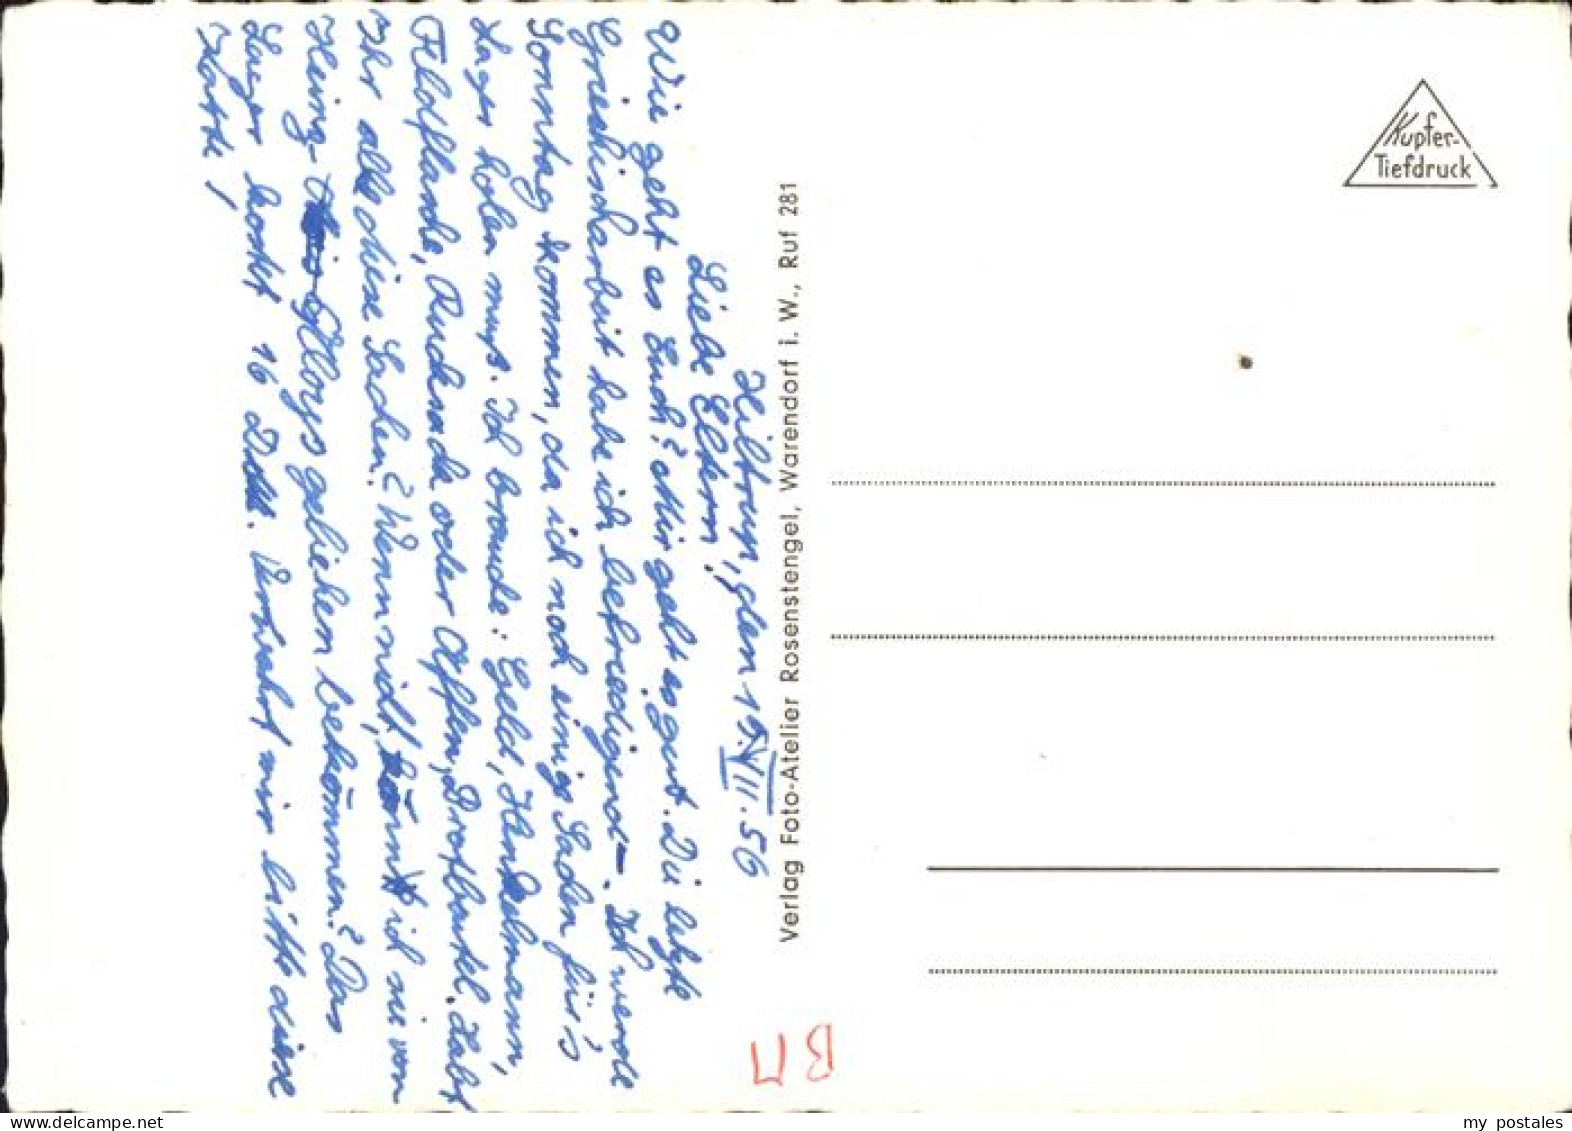 Hiltrup, den 15.VIII.56
Liebe Eltern!
Wie geht es Euch? Mir geht es gut. Die letzte
Griechischarbeit habe ich befriedigend-. Ich werde
Sonntag kommen, da ich noch einige Sachen für's
Lager holen muß. Ich brauche: Geld, Henkelmann,
Feldflasche, Rucksack oder Affen, Brotbeutel. Habt
Ihr alle diese Sachen? Wenn nicht, könnt ich sie von
Heinz- Gloys geliehen bekommen? Das
Lager kostet 16 DM. Verwahrt mir bitte diese
Karte!
Verlag Foto-Atelier Rosenstengel, Warendorf i. W., Ruf 281
Kupfer-
Tiefdruck
BM
my postales